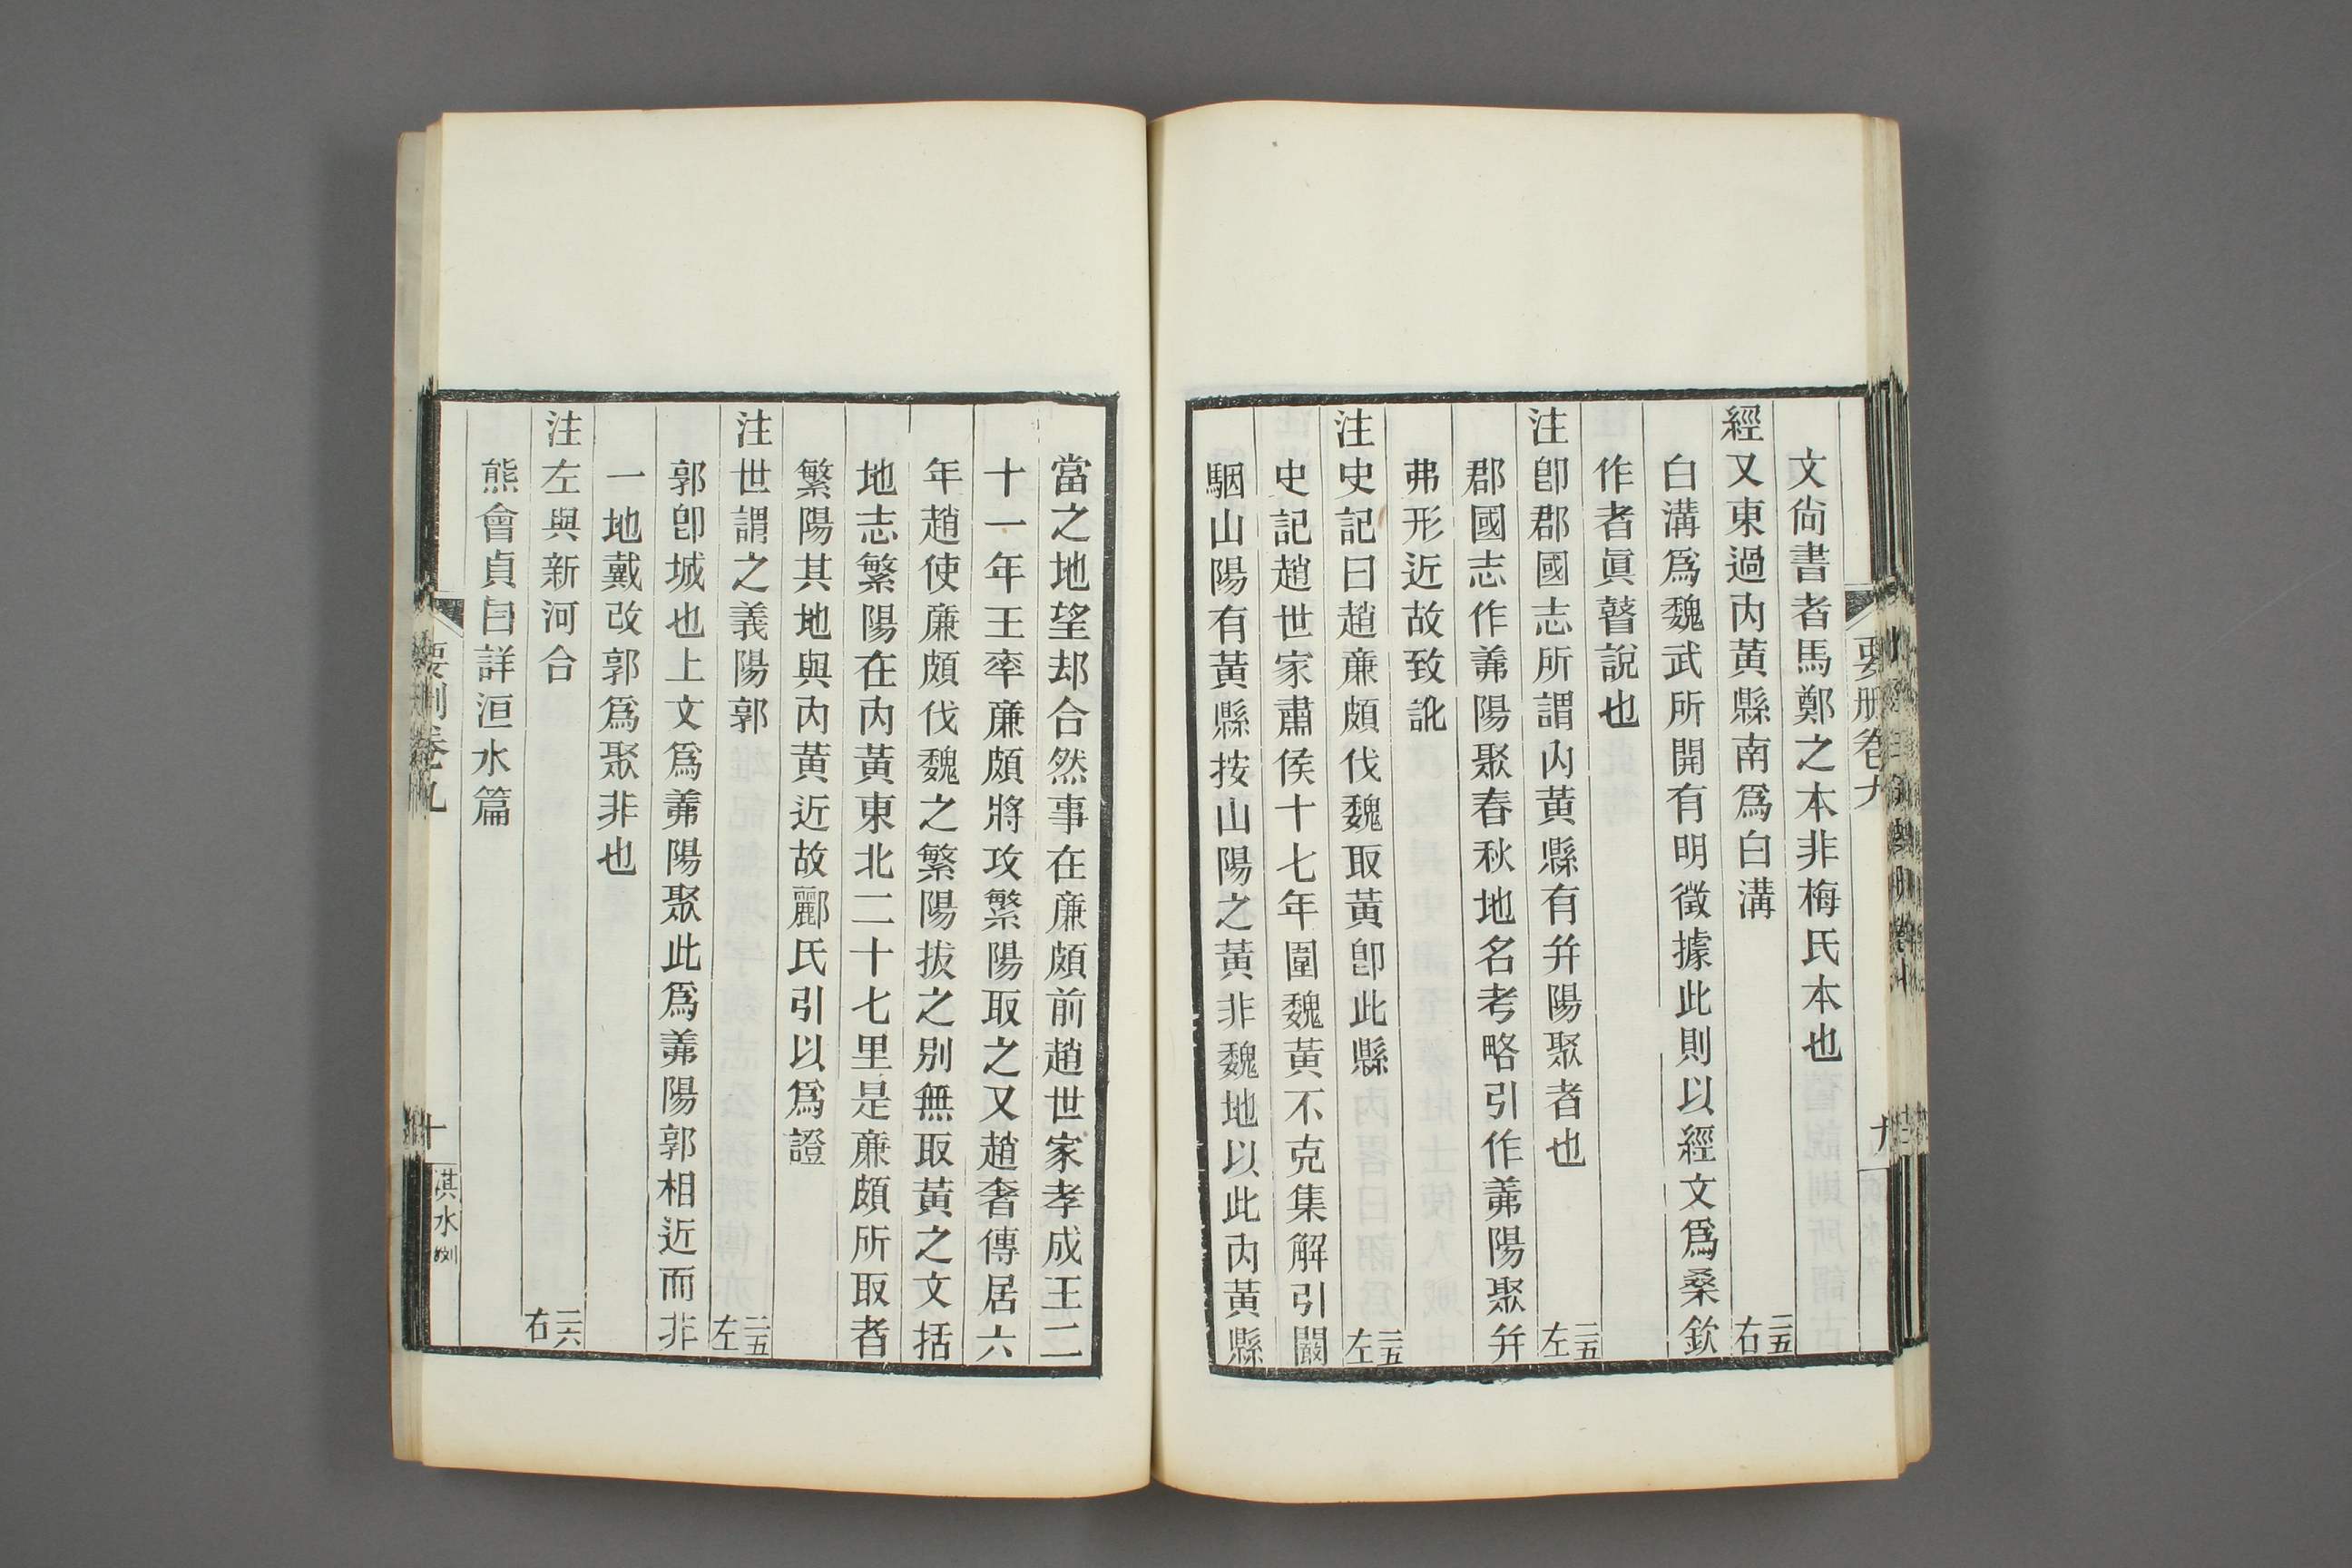 文尙書者馬鄭之本非梅氏本也
經又東過內黃縣南爲白溝 二五右
白溝爲魏武所開有明徵據此則以經文爲桑欽
作者眞瞽說也
注卽郡國志所謂內黃縣有幷陽聚者也 二五左
郡國志作羛陽聚春秋地名考略引作羛陽聚幷
弗形近故致訛
注史記曰趙廉頗伐魏取黃卽此縣 二五左
史記趙世家肅侯十七年圍魏黃不克集解引闞
駰山陽有黃縣按山陽之黃非魏地以此內黃縣
當之地望却合然事在廉頗前趙世家孝成王二
十一年王率廉頗將攻繁陽取之又趙奢傳居六
年趙使廉頗伐魏之繁陽拔之別無取黃之文括
地志繁陽在內黃東北二十七里是廉頗所取者
繁陽其地與內黃近故酈氏引以爲證
注世謂之義陽郭 二五左
郭卽城也上文爲羛陽聚此爲羛陽郭相近而非
一地戴改郭爲聚非也
注左與新河合 二六右
熊會貞自詳洹水篇
要刪卷九
十
淇水